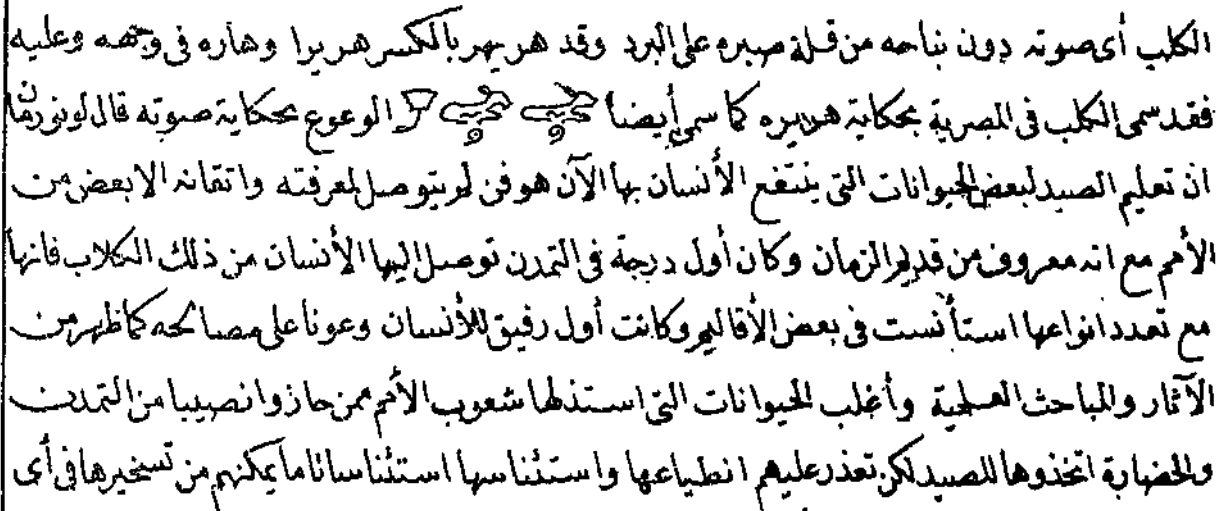 الكلب أى صوته دون نباحه من قلة صبره على البرد وقد هر يهر بالكسر هريرا وهاره فى وجهه وعليه
فقد سمى الكلب فى المصرية بحكاية هريره كما سمى أيضا الوعوع بحكاية صوته قال لونورمان
ان تعليم الصيد لبعض الحيوانات التى ينتفع الأنسان بها الآن هو فن لم يتوصل لمعرفته واتقانه الا بعض من
الأمم مع انه معروف من قديم الزمان وكان أول درجة فى التمدن توصل اليها الأنسان من ذلك الكلاب فانها
مع تعدد انواعها استأنست فى بعض الأقاليم وكانت أول رفيق للأنسان وعونا على مصالحه كما ظهر من
الآثار والمباحث العلمية وأغلب الحيوانات التى استذلها شعوب الأمم ممن حازوا نصيبا من التمدن
والحضارة اتخذوها للصيد لكن تعذر عليهم انطياعها واستئناسها استئناسا تاما يمكنهم من تسخيرها فى أى